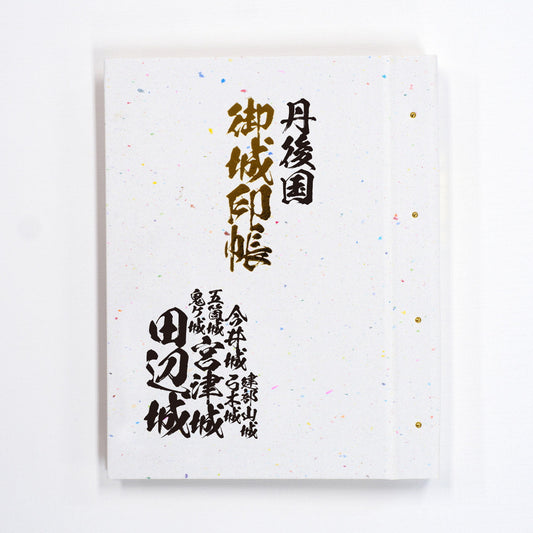 丹後国
御城印帳
建部山城
今井城
弓木城
宮津城
五箇城
鬼ケ城
田辺城